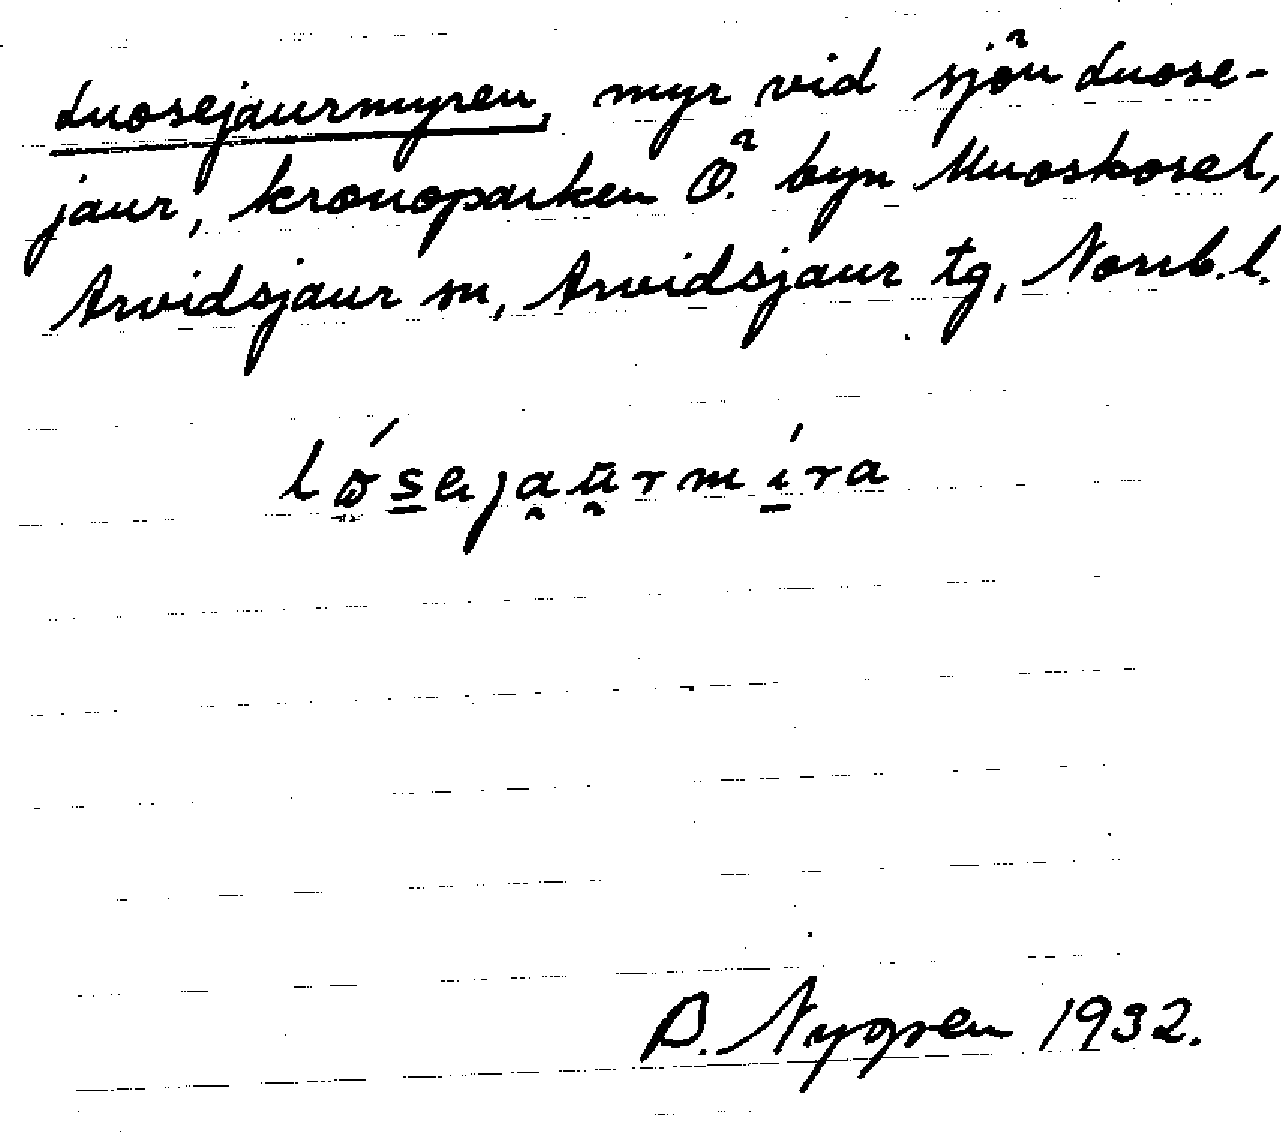 Luosejaurmyren, myr vid sjön Luose-
jaur, kronoparken Ö. byn Muoskosel,
Arvidsjaur sn, Arvidsjaur tg, Norrb. l.
B. Nygren 1932.